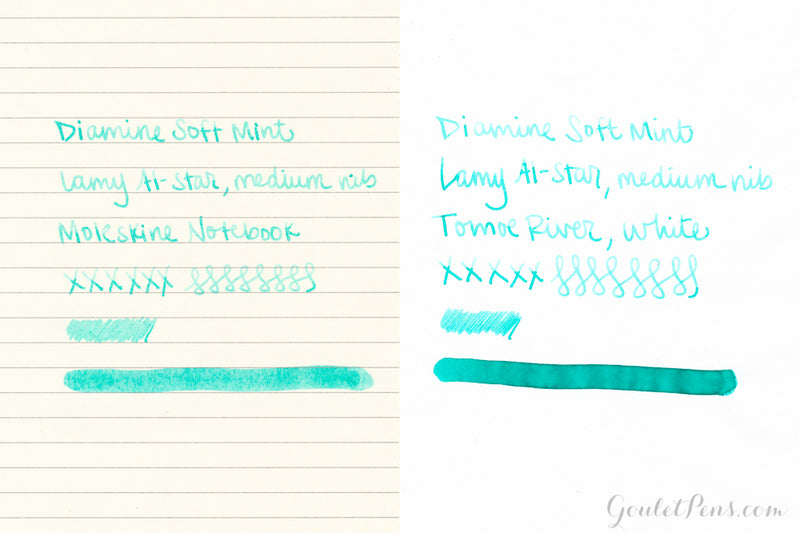 Diamine Soft Mint
Lamy Al-Star, medium nib
Moleskine Notebook
xxxxxx
Diamine Soft Mint
Lamy Al-Star, medium nib
Tomoe River, White
xxxxx
GouletPens.com